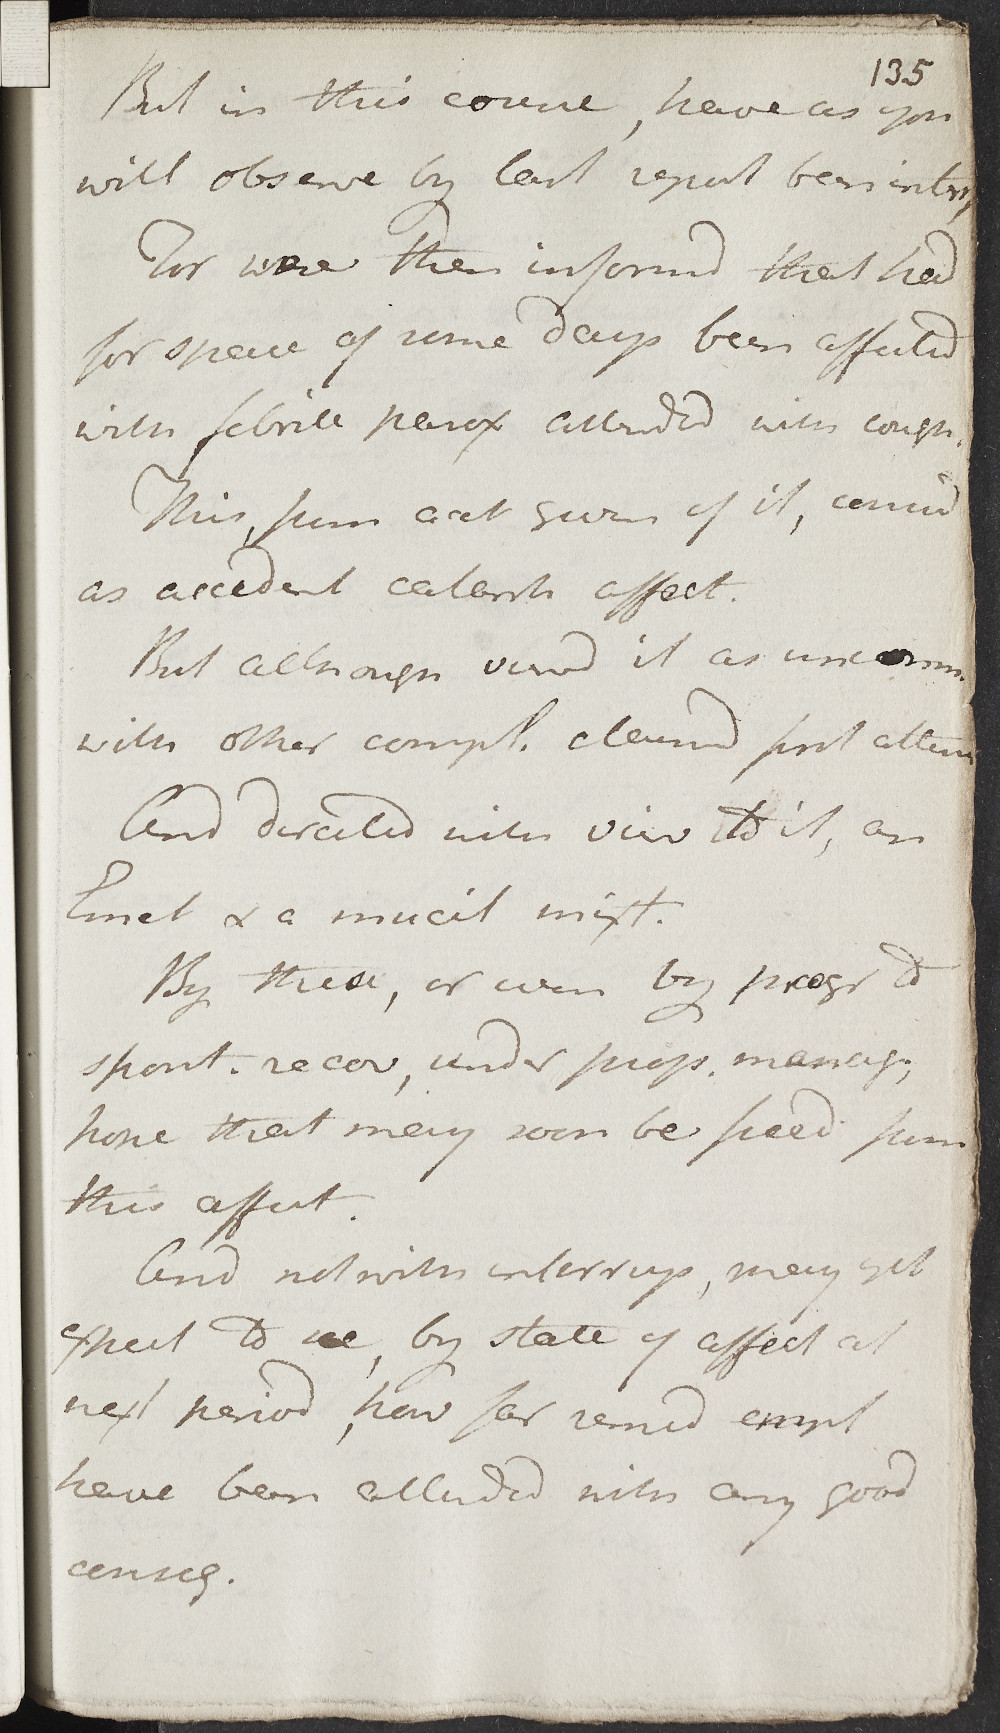 135
But in this course, have as you
will observe by last report been interr
For were then informd that had
for space of some days been affected
with febrile parox attended with cough.
This, from acct given of it, consid
as accident catarrh affect.
But although viewd it as unconn.
with other compl. deemd first attent
And directed with view to it, an
Emet & a mucil mixt.
By these, or even by progr to
spont. recov, under prop. manag,
hope that may soon be freed from
this affect.
And notwith interrup, may yet
expect to see, by state of affect at
next period, how far remed empl
have been attended with any good
conseq.